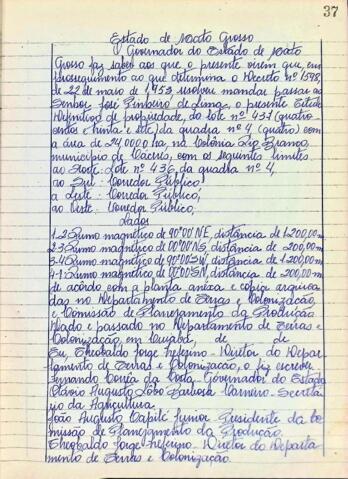 37
Estado de Mato Grosso
Governador do Estado de Mato
Grosso faz saber aos que o presente virem que, em
prosseguimento ao que determina o Decreto nº 1598,
de 22 de maio de 1.953, resolveu mandar passar ao
Senhor José Pinheiro de Lima, o presente Título
Definitivo de propriedade, do lote nº 437 (quatro-
centos e trinta e sete) da quadra nº 4 (quatro) com
a área de 24.0000 ha, na Colônia Rio Branco,
município de Cáceres, com os seguintes limites
ao Norte: Lote nº 436 da quadra nº 4,
ao Sul: Corredor Público;
a Leste: Corredor Público;
ao Oeste: Corredor Público,
Lados
1-2 Rumo magnético de 90º00'NE, distância de 1.200,00m
2-3 Rumo magnético de 00º00'NS, distância de 200,00m
3-4 Rumo magnético de 90º00'SW, distância de 1.200,00m
4-1 Rumo magnético de 00º00'SN, distância de 200,00m
de acôrdo com a planta anexa e cópia arquiva
das no Departamento de Terras e Colonização,
e Comissão de Planejamento da Produção
Dado e passado no Departamento de Terras e
Colonização, em Cuiabá, de de
Eu, Theobaldo Jorge Diretor do Depar-
tamento de Terras e Colonização, o fiz escrever
Fernando Corrêa da Costa - Governador do Estado
Otávio Augusto Lobo Barbosa Carneiro - Secretá-
rio da Agricultura.
João Augusto Capilé Junior - Presidente da Co-
missão de Planejamento da Produção.
Theobaldo Jorge - Diretor do Departa-
mento de Terras e Colonização.